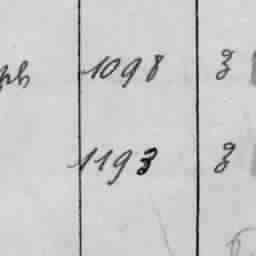 1098 3
1193 3